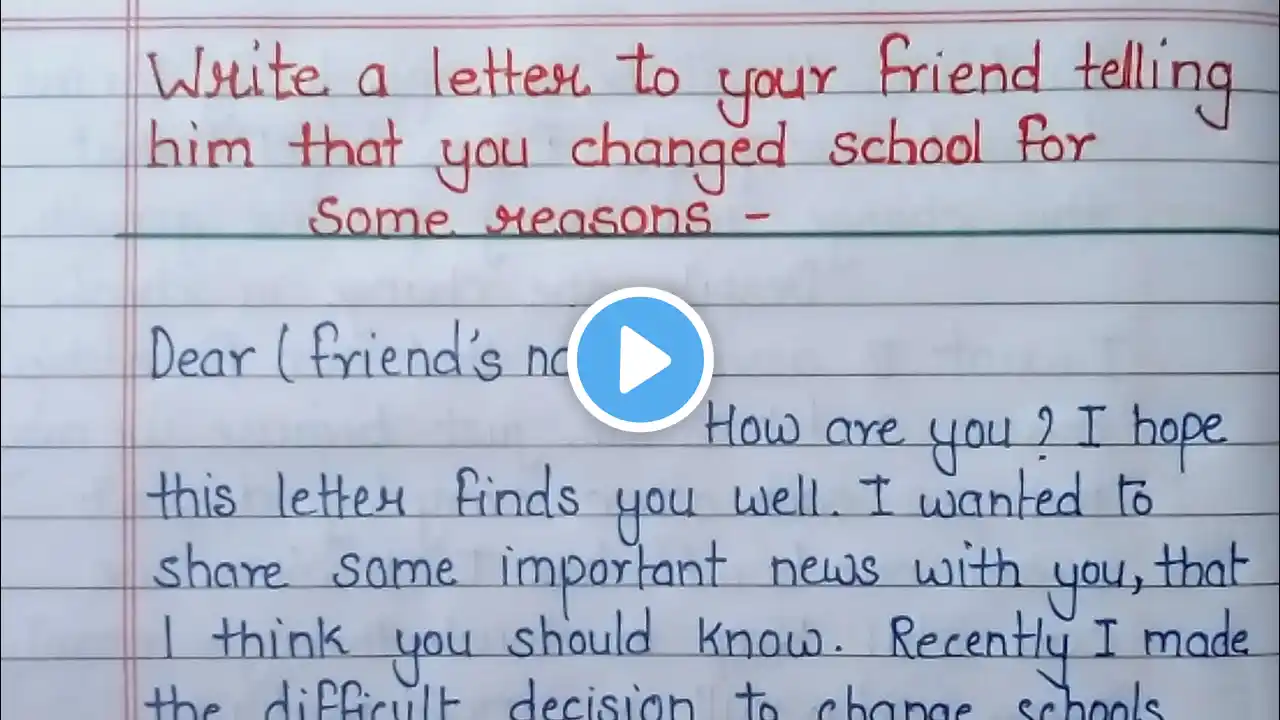 Write a letter to your friend telling
him that you changed school for
some reasons -
Dear (friend's
How are you? I hope
this letter finds you well. I wanted to
share some important news with you, that
I think you should know. Recently I made
the difficult decision to change schools